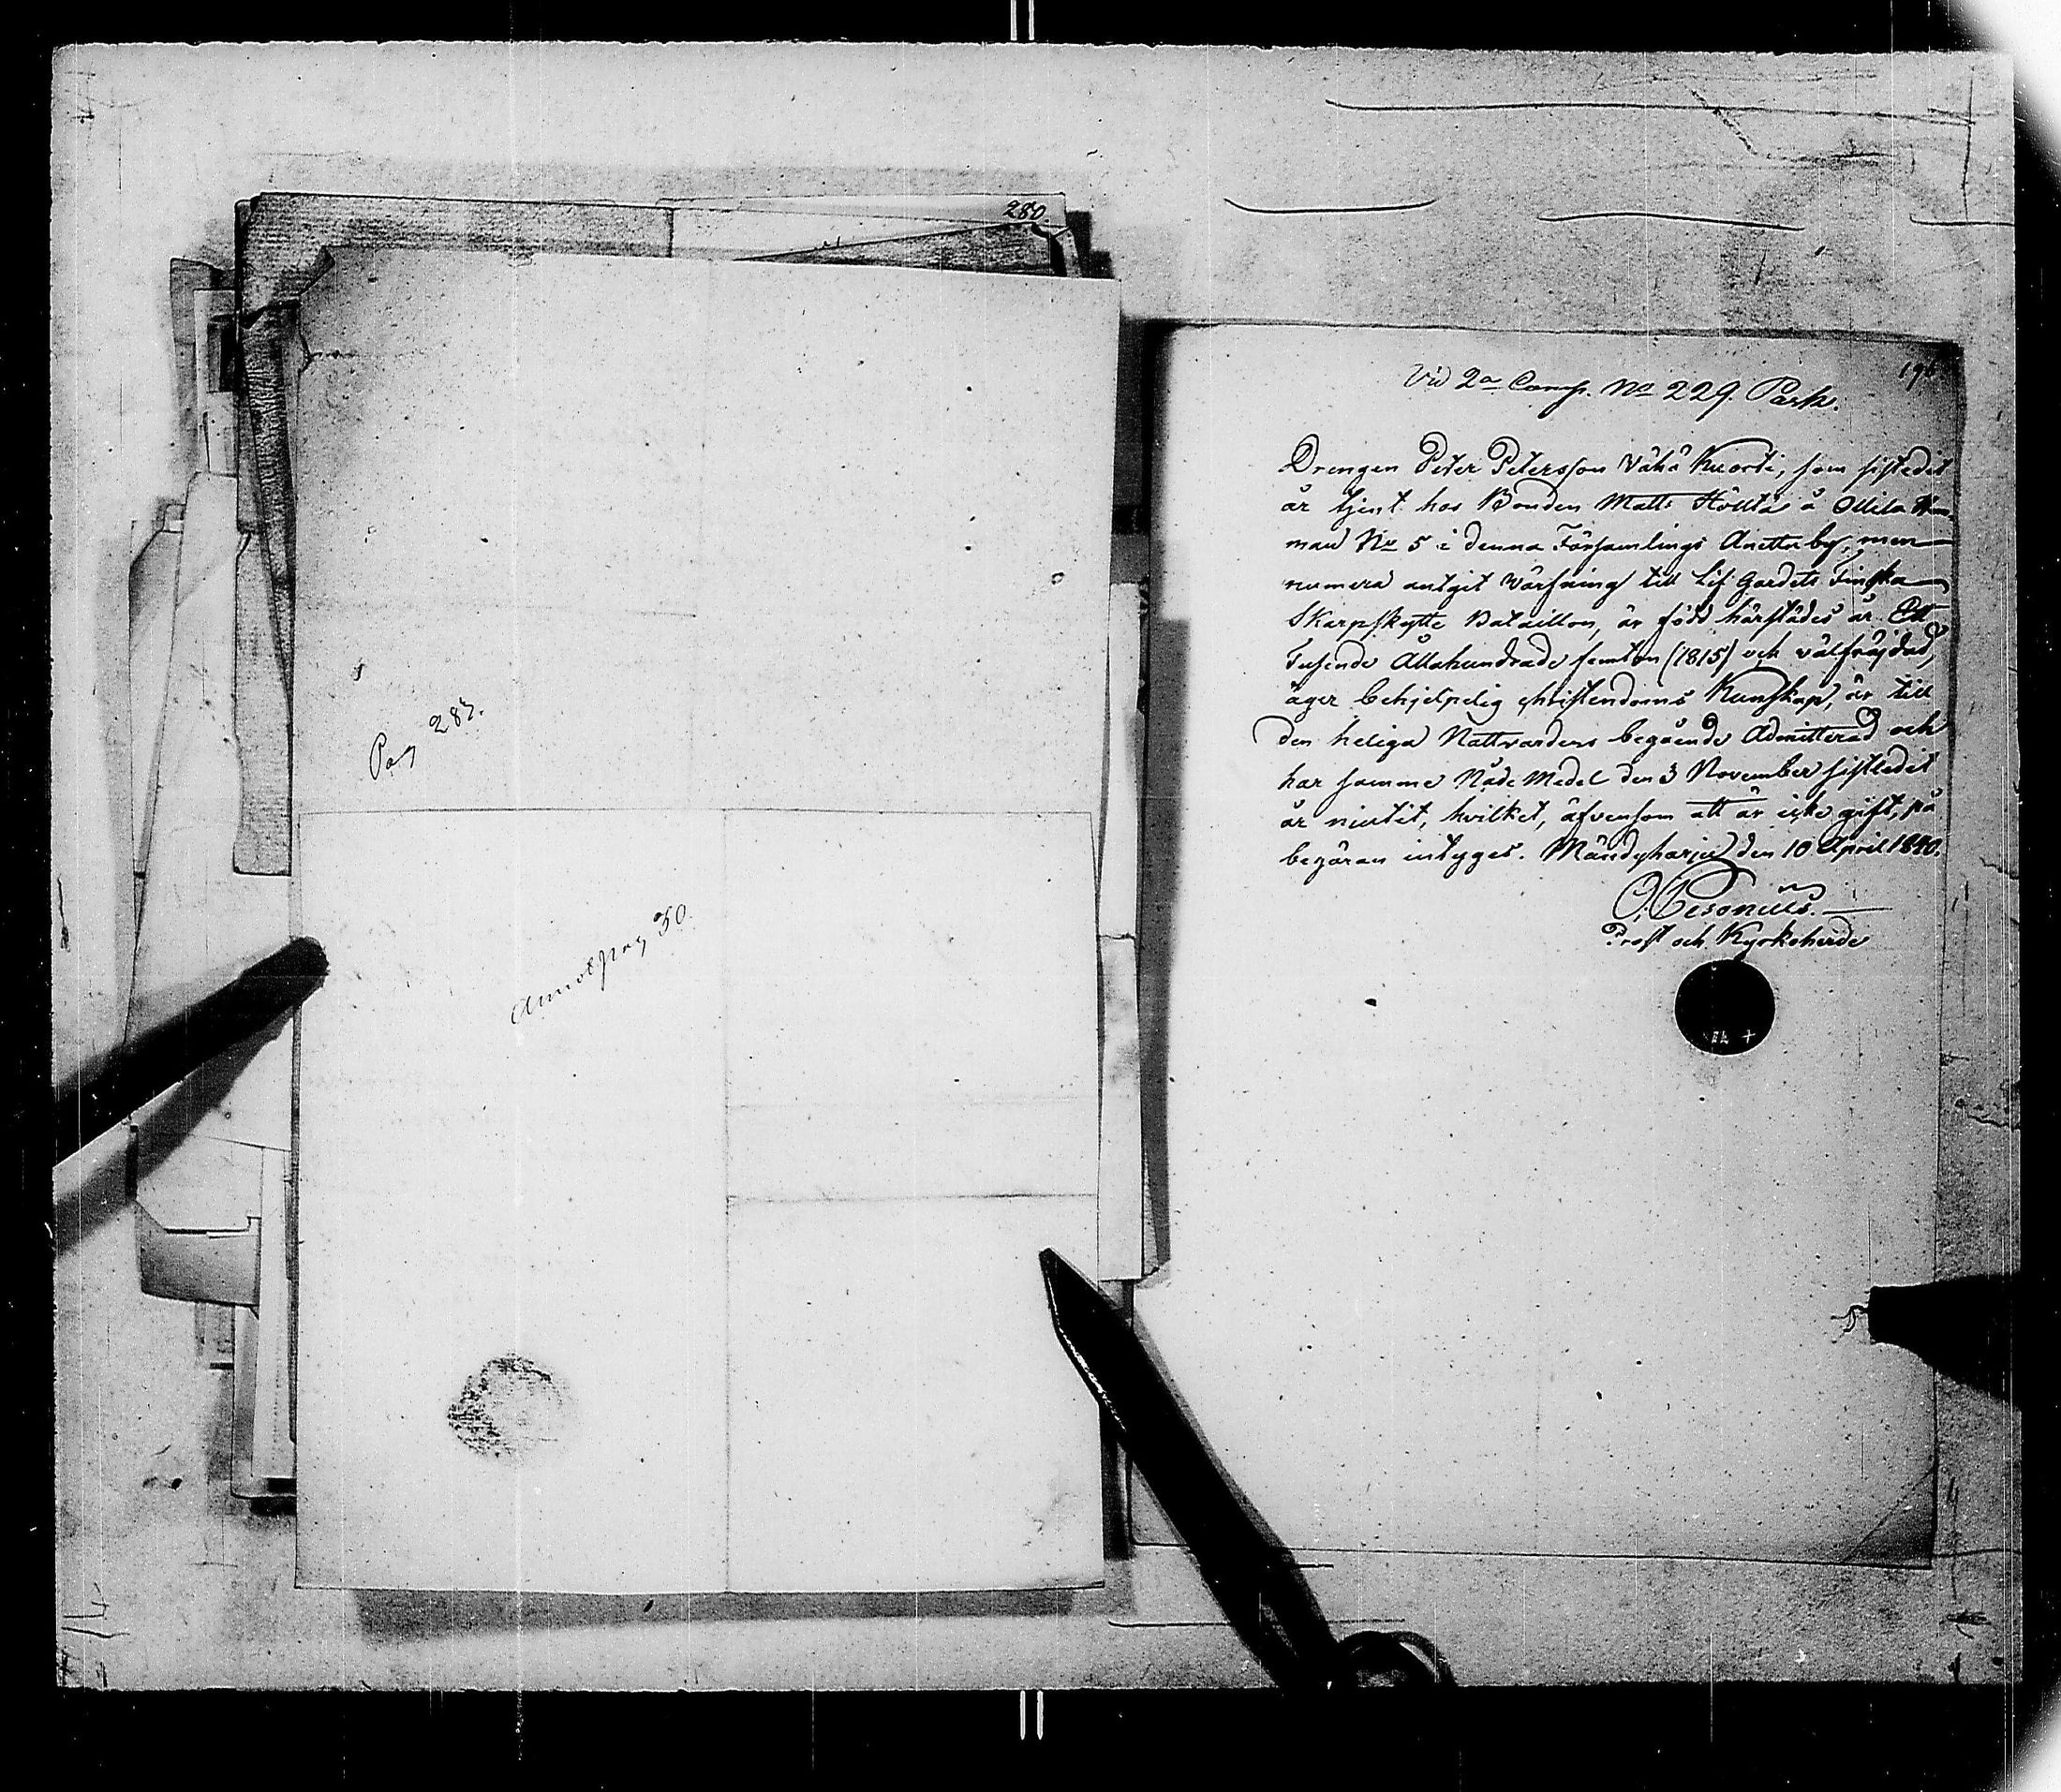 280.
Pag 283.
Annot pag 30.
196
Vid 2a Comp. No 229. Pask.
Drengen Peter Petersson Vähä Kuorti, som sistledit
år tjent hos Bonden Matts Hölttä å Ollila Hem-
man No 5 i denna Församlings Anettu by, men
numera antgit värfning till Lif Gardets Finska
Skarpskytte Bataillon, är född härstädes år Ett
Tusende Åttahundrade femton (1815) och välfräjdad,
äger behjelpelig christendoms Kunskap, är till
den heliga Nattvardens begående Admitterad och
har samma Nåde Medel den 3 November sistledit
år niutit, hvilket, äfvensom att är icke gift, på
begäran intyges. Mändyharju den 10 April 1840.
Prost och Kyrkoherde